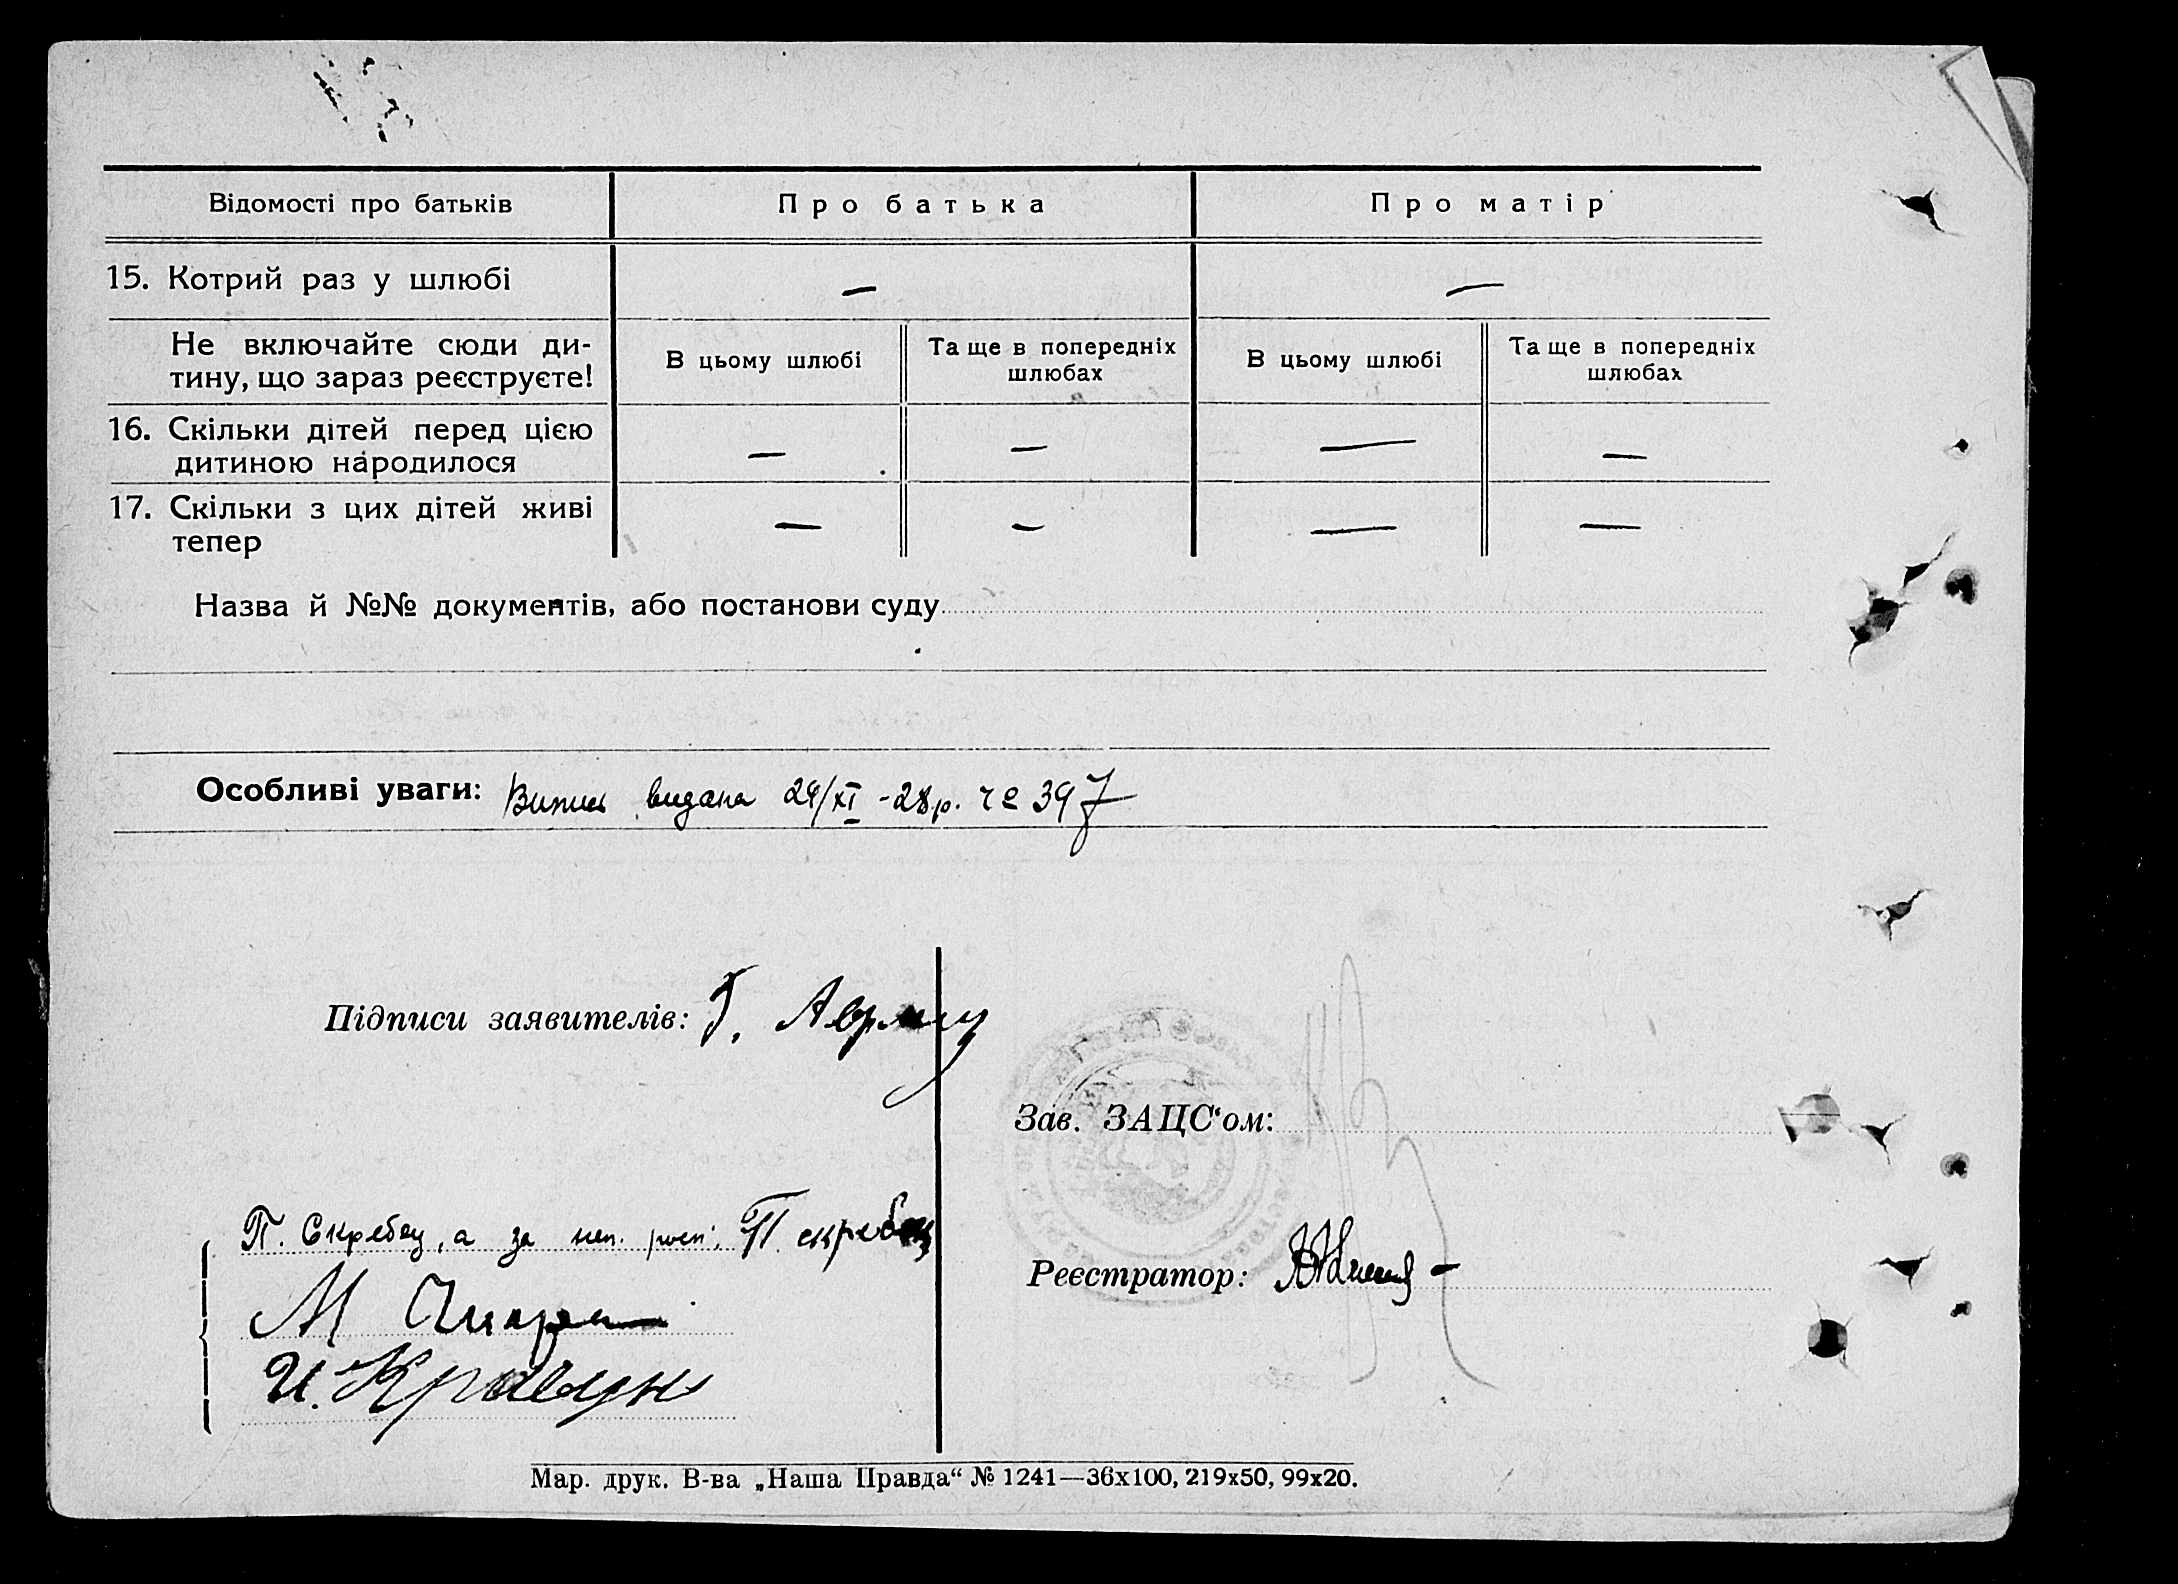 Відомості про батьків
Про батька
Про матір
15. Котрий раз у шлюбі
—
—
Не включайте сюди ди-
тину, що зараз реєструєте!
В цьому шлюбі
Та ще в попередніх
шлюбах
В цьому шлюбі
Та ще в попередніх
шлюбах
16. Скільки дітей перед цією
дитиною народилося
—
—
—
—
17. Скільки з цих дітей живі
тепер
—
—
—
—
Назва й №№ документів, або постанови суду
Особливі уваги: Випись видана 24/XI -28р. 397
Підписи заявителів:
Зав. ЗАЦС'ом:
П. Скребец, а за неп. росп. П. скребец
М
И. Кравцун
Реєстратор:
Мар. друк. В-ва „Наша Правда“ № 1241—36х100, 219х50, 99х20.